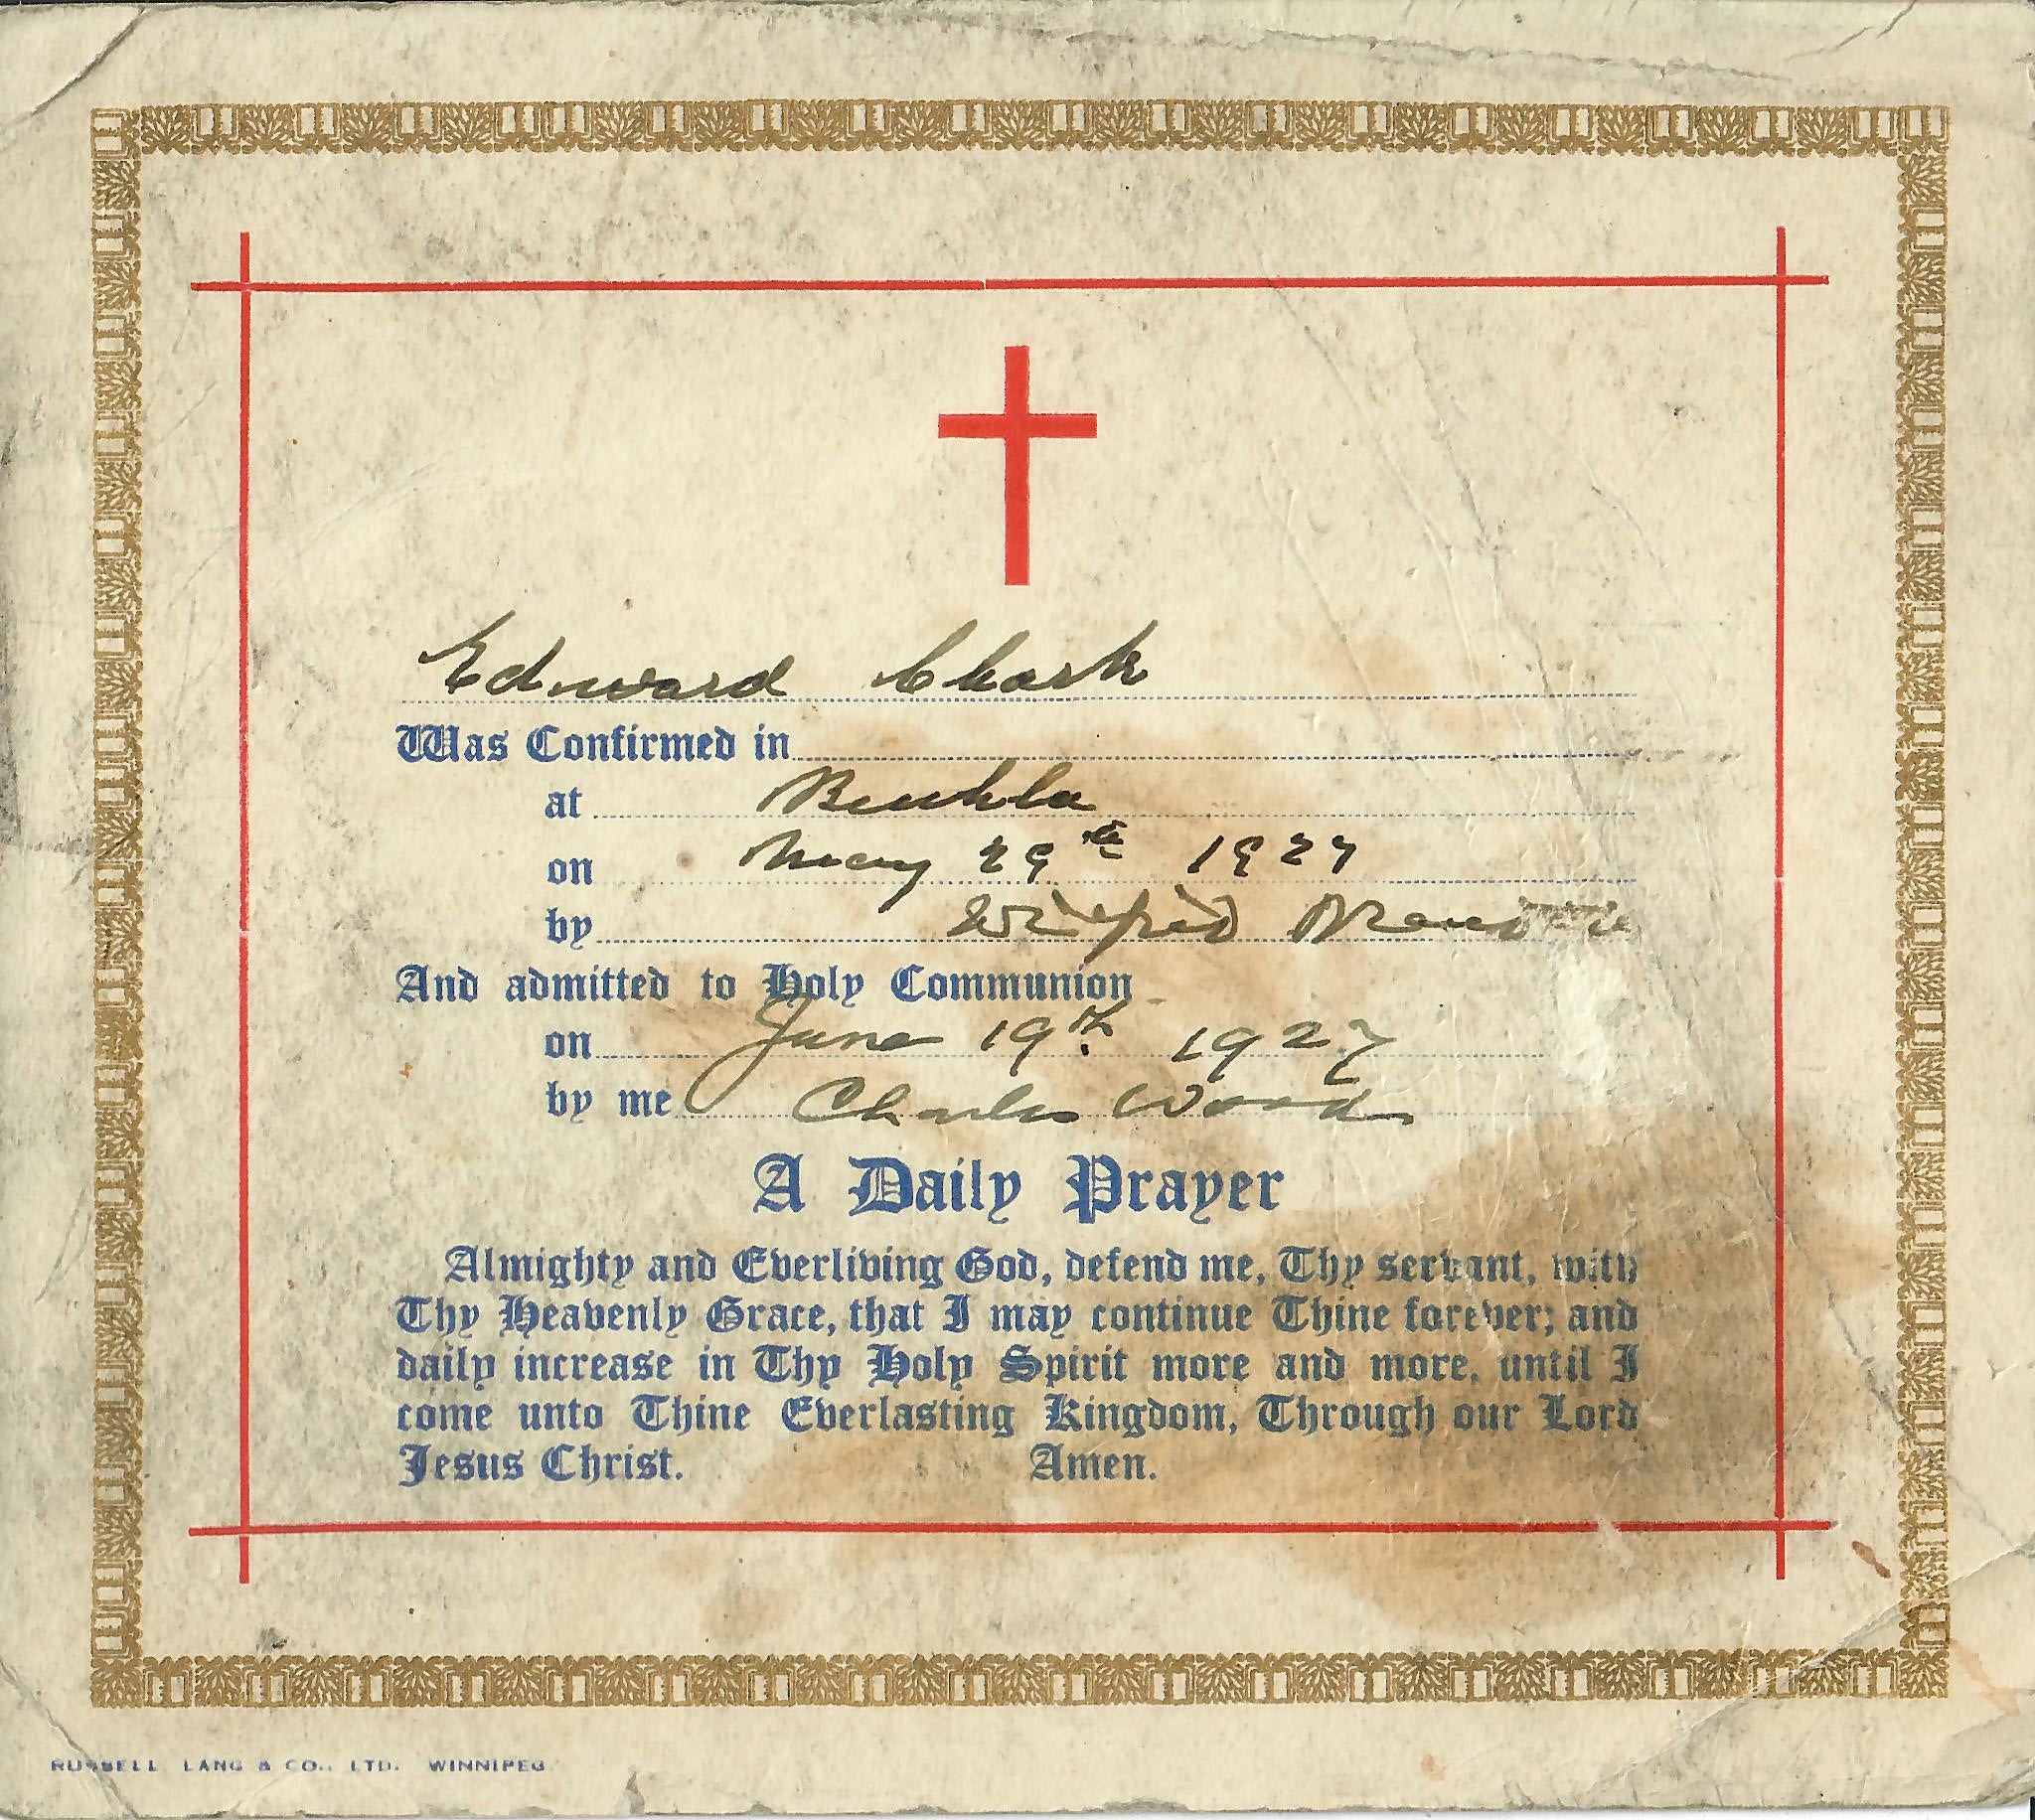 Edward Clark
Was Confirmed in
at Beulah
on May 29th 1927
by Wilfrid
And admitted to Holy Communion
on June 19th 1927
by me Charles Wood
A Daily Prayer
Almighty and Everliving God, defend me, Thy servant, with
Thy Heavenly Grace, that I may continue Thine forever; and
daily increase in Thy Holy Spirit more and more, until I
come unto Thine Everlasting Kingdom, Through our Lord
Jesus Christ. Amen.
RUSSELL LANG & CO., LTD. WINNIPEG